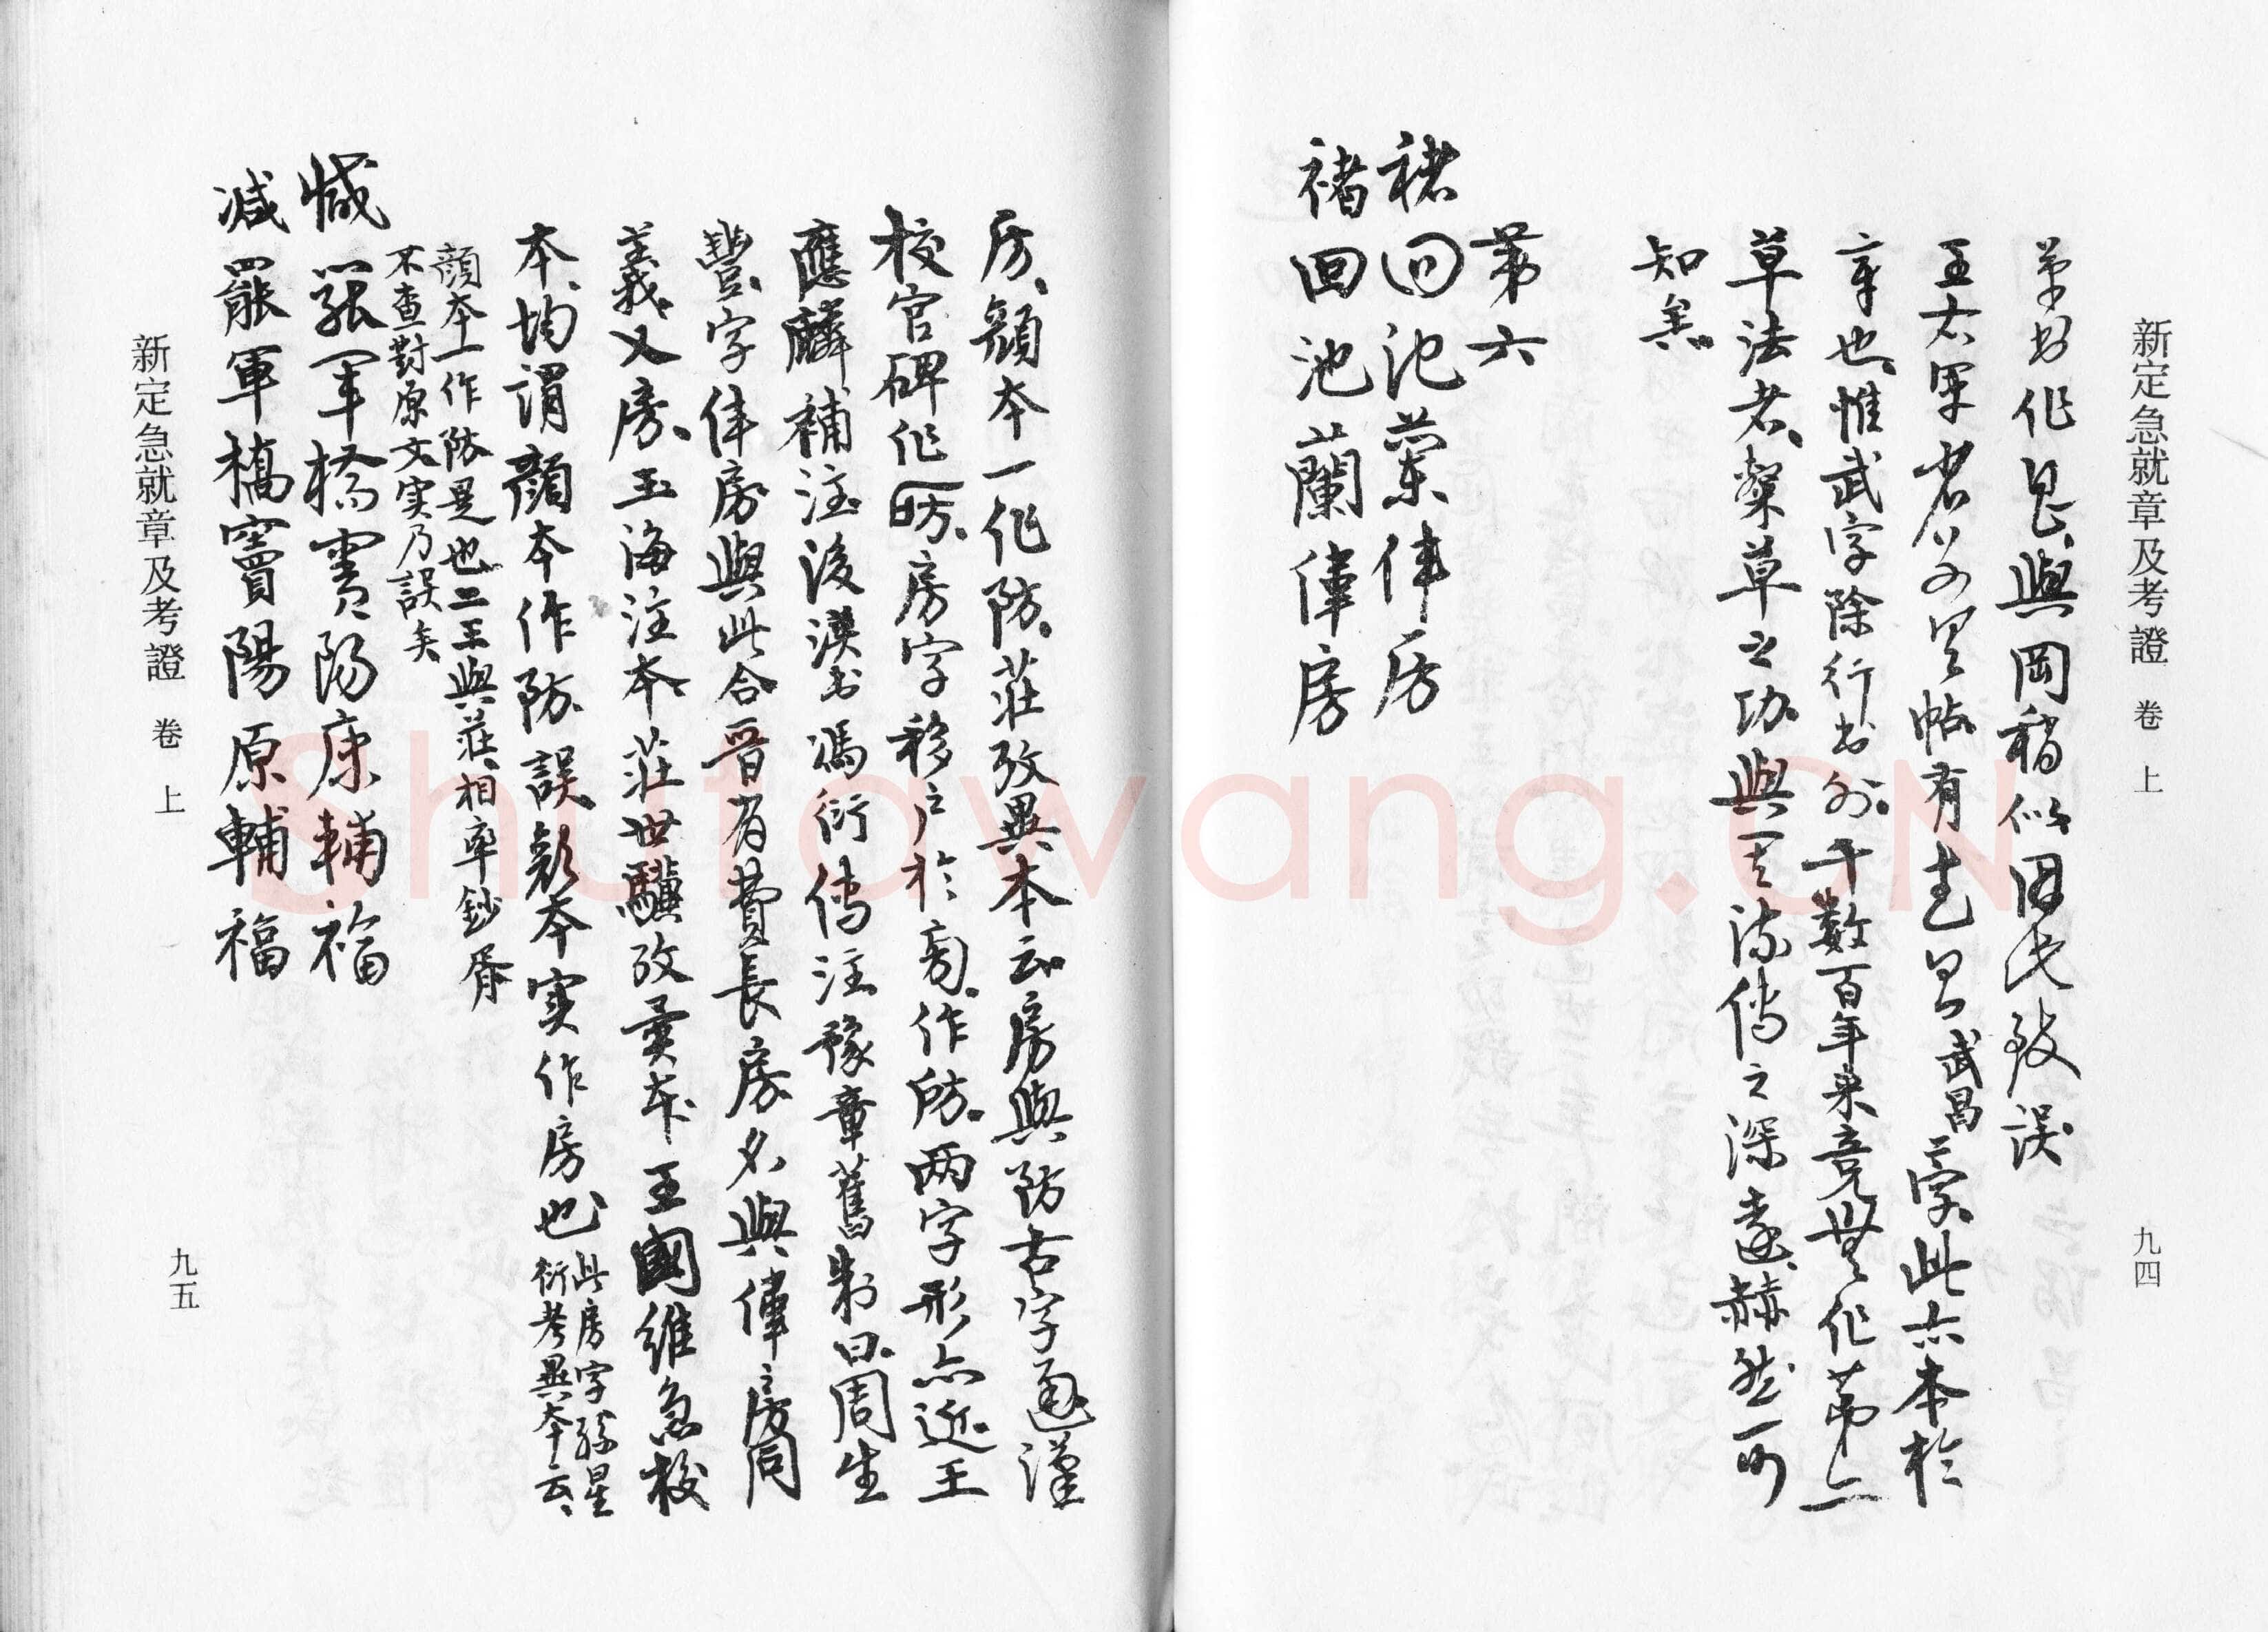 新定急就章及考證 卷上
九四
草書作 與岡稍似因此致誤
王右軍 帖有 武昌 字此亦本於
章也惟武字除行書外千數百年來竟無作 上
草法者察草之功與 流傳之深遠赫然可
知矣
第六
褚回池蘭偉房
褚回池蘭偉房
房顏本一作防莊攷異本云房與防古字通漢
校官碑作 房字移户於 作防兩字形亦近王
應麟補注後漢書馮衍傳注豫章舊制曰周生
豐字偉房與此合晉有費長房名與偉房同
義又房玉海注本莊世驥攷異本王國維急校
本均謂顏本作防誤顏本實作房也此房字孫星
衍考異本云
顏本一作防是也二王與莊相率鈔胥
不查對原文实乃誤矣
减罷軍橋竇陽原輔福
减罷軍橋竇陽原輔福
新定急就章及考證 卷上
九五
Shufawang.CN